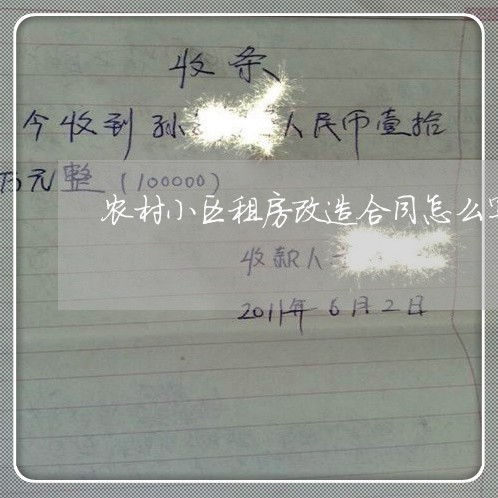 收条
今收到孙 人民币壹拾
万元整(100000)
农村小区租房改造合同怎么写
收款人
2011年6月2日